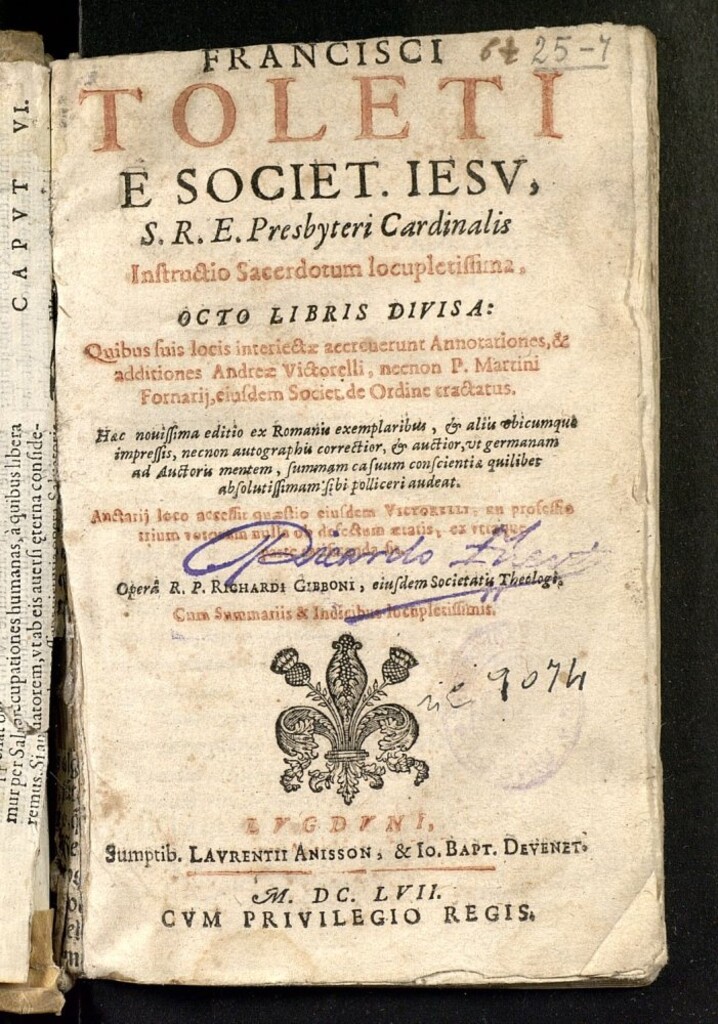 FRANCISCI
64 25-7
TOLETI
E SOCIET. IESV,
S. R. E. Presbyteri Cardinalis
Instructio Sacerdotum locupletissima,
OCTO LIBRIS DIVISA:
Quibus suis locis interiectæ accreuerunt Annotationes, &
additiones Andreæ Victorelli, necnon P. Martini
Fornarij, eiusdem Societ. de Ordine tractatus.
Hæc nouissima editio ex Romanis exemplaribus, & aliis vbicumque
impressis, necnon autographis correctior, & auctior, vt germanam
ad Auctoris mentem, summam casuum conscientiæ quilibet
absolutissimam sibi polliceri audeat.
Auctarij loco accessit quæstio eiusdem VICTORELLI; an professio
trium votorum nulla ob defectum ætatis, ex vtraque
parte
Ricardo
Operâ R. P. RICHARDI GIBBONI, eiusdem Societatis Theologi.
Cum Summariis & Indicibus locupletissimis.
9074
LVGDVNI,
Sumptib. LAVRENTII ANISSON, & IO. BAPT. DEVENET.
M. DC. LVII.
CVM PRIVILEGIO REGIS.
CAPVT VI.
cupationes humanas, a quibus libera
mur per Sal
uatorem, vt ab eis auersi æterna conside-
remus. Si